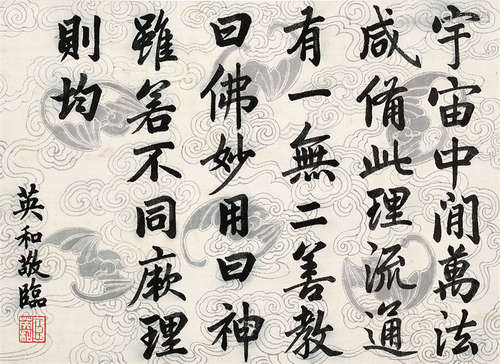 宇宙中間萬法
咸俻此理流通
有一無二善教
曰佛妙用曰神
雖若不同厥理
則均
英和敬臨